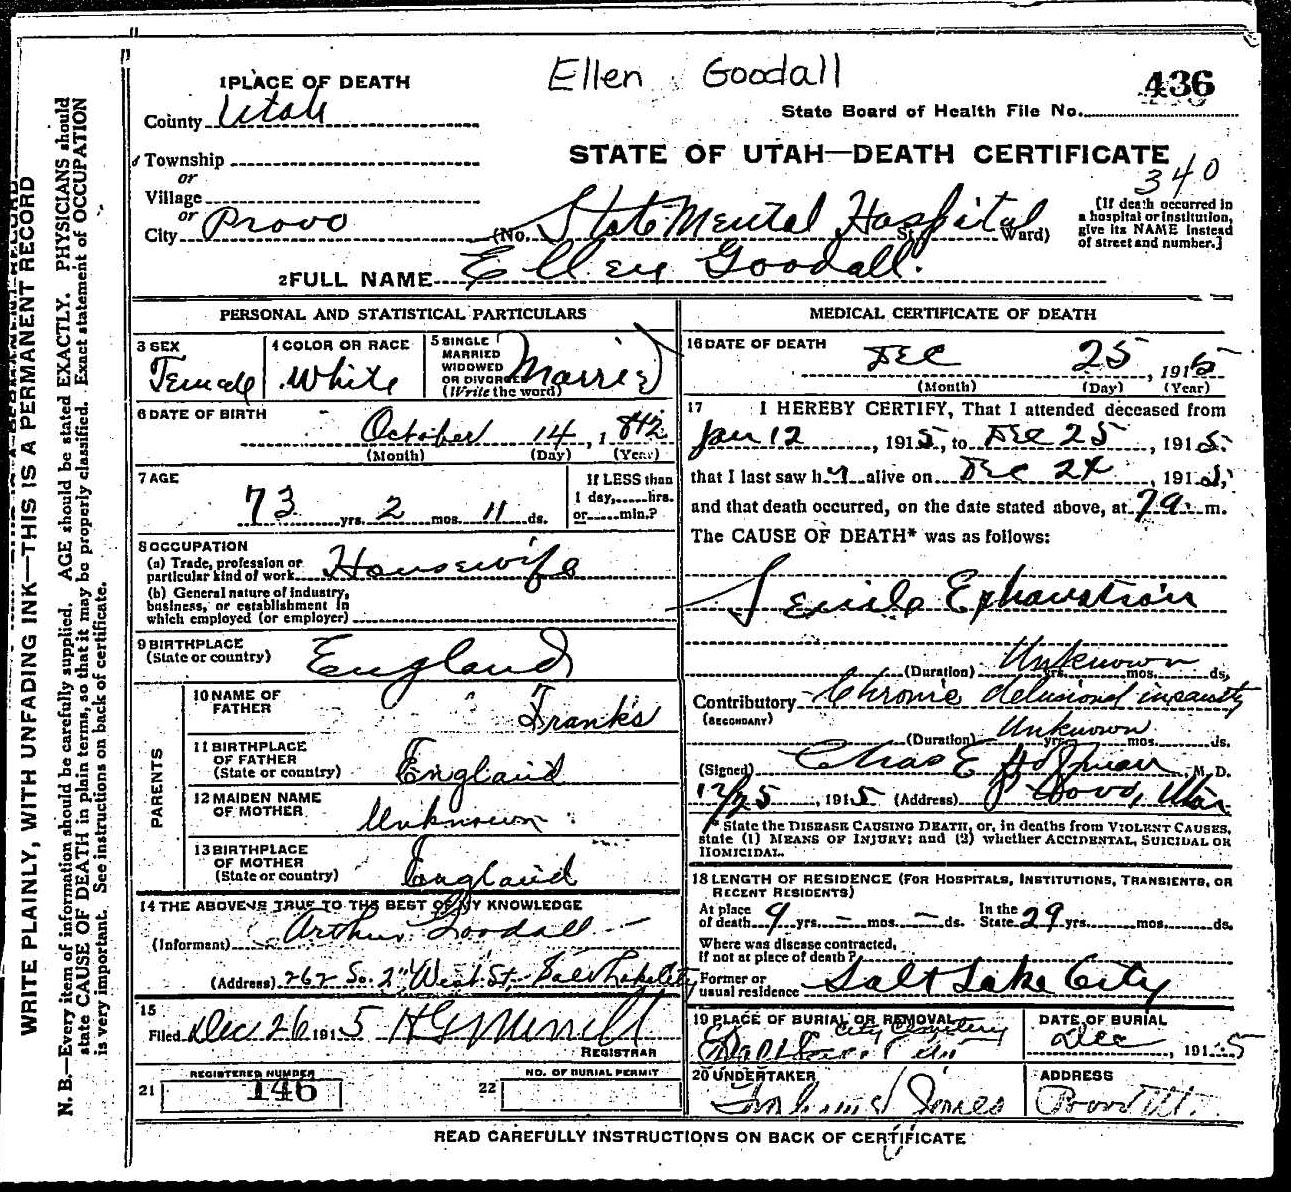 Ellen Goodall
436
State Board of Health File No.
STATE OF UTAH—DEATH CERTIFICATE
340
1 PLACE OF DEATH
County Utah
Township
or
Village
or
City Provo (No. State Mental Hospital St. Ward)
[If death occurred in
a hospital or institution,
give its NAME instead
of street and number.]
2 FULL NAME Ellen Goodall.
PERSONAL AND STATISTICAL PARTICULARS
3 SEX
Female
4 COLOR OR RACE
White
5 SINGLE
MARRIED
WIDOWED
OR DIVORCED
(Write the word)
Married
6 DATE OF BIRTH
October 14, 1842
(Month) (Day) (Year)
7 AGE
73 yrs. 2 mos. 11 ds.
If LESS than
1 day, hrs.
or min.?
8 OCCUPATION
(a) Trade, profession or
particular kind of work Housewife
(b) General nature of industry,
business, or establishment in
which employed (or employer)
9 BIRTHPLACE
(State or country)
England
PARENTS
10 NAME OF
FATHER
Franks
11 BIRTHPLACE
OF FATHER
(State or country)
England
12 MAIDEN NAME
OF MOTHER
Unknown
13 BIRTHPLACE
OF MOTHER
(State or country)
England
14 THE ABOVE IS TRUE TO THE BEST OF MY KNOWLEDGE
(Informant) Arthur Goodall
(Address) 262 So. 2" West St. Salt Lake City
15
Filed Dec 26 1915 H G Merrill
REGISTRAR
21
REGISTERED NUMBER
146
22
NO. OF BURIAL PERMIT
MEDICAL CERTIFICATE OF DEATH
16 DATE OF DEATH
Dec 25, 1915
(Month) (Day) (Year)
17 I HEREBY CERTIFY, That I attended deceased from
Jan 12, 1915, to Dec 25, 1915.
that I last saw her alive on Dec 24, 1915,
and that death occurred, on the date stated above, at 7 a. m.
The CAUSE OF DEATH* was as follows:
Senile Exhaustion
(Duration) Unknown yrs. mos. ds.
Contributory Chronic delusional insanity
(SECONDARY)
(Duration) Unknown yrs. mos. ds.
(Signed) Chas E , M. D.
12/25, 1915 (Address) Provo, Utah
* State the DISEASE CAUSING DEATH, or, in deaths from VIOLENT CAUSES,
state (1) MEANS OF INJURY; and (2) whether ACCIDENTAL, SUICIDAL OR
HOMICIDAL.
18 LENGTH OF RESIDENCE (FOR HOSPITALS, INSTITUTIONS, TRANSIENTS, OR
RECENT RESIDENTS)
At place
of death 9 yrs. – mos. – ds. In the
State 29 yrs. mos. ds.
Where was disease contracted,
if not at place of death?
Former or
usual residence Salt Lake City
19 PLACE OF BURIAL OR REMOVAL
City Cemetery
DATE OF BURIAL
Dec , 1915
20 UNDERTAKER
Jones
ADDRESS
Provo Ut.
READ CAREFULLY INSTRUCTIONS ON BACK OF CERTIFICATE
WRITE PLAINLY, WITH UNFADING INK—THIS IS A PERMANENT RECORD
N. B.—Every item of information should be carefully supplied. AGE should be stated EXACTLY. PHYSICIANS should
state CAUSE OF DEATH in plain terms, so that it may be properly classified. Exact statement of OCCUPATION
is very important. See instructions on back of certificate.